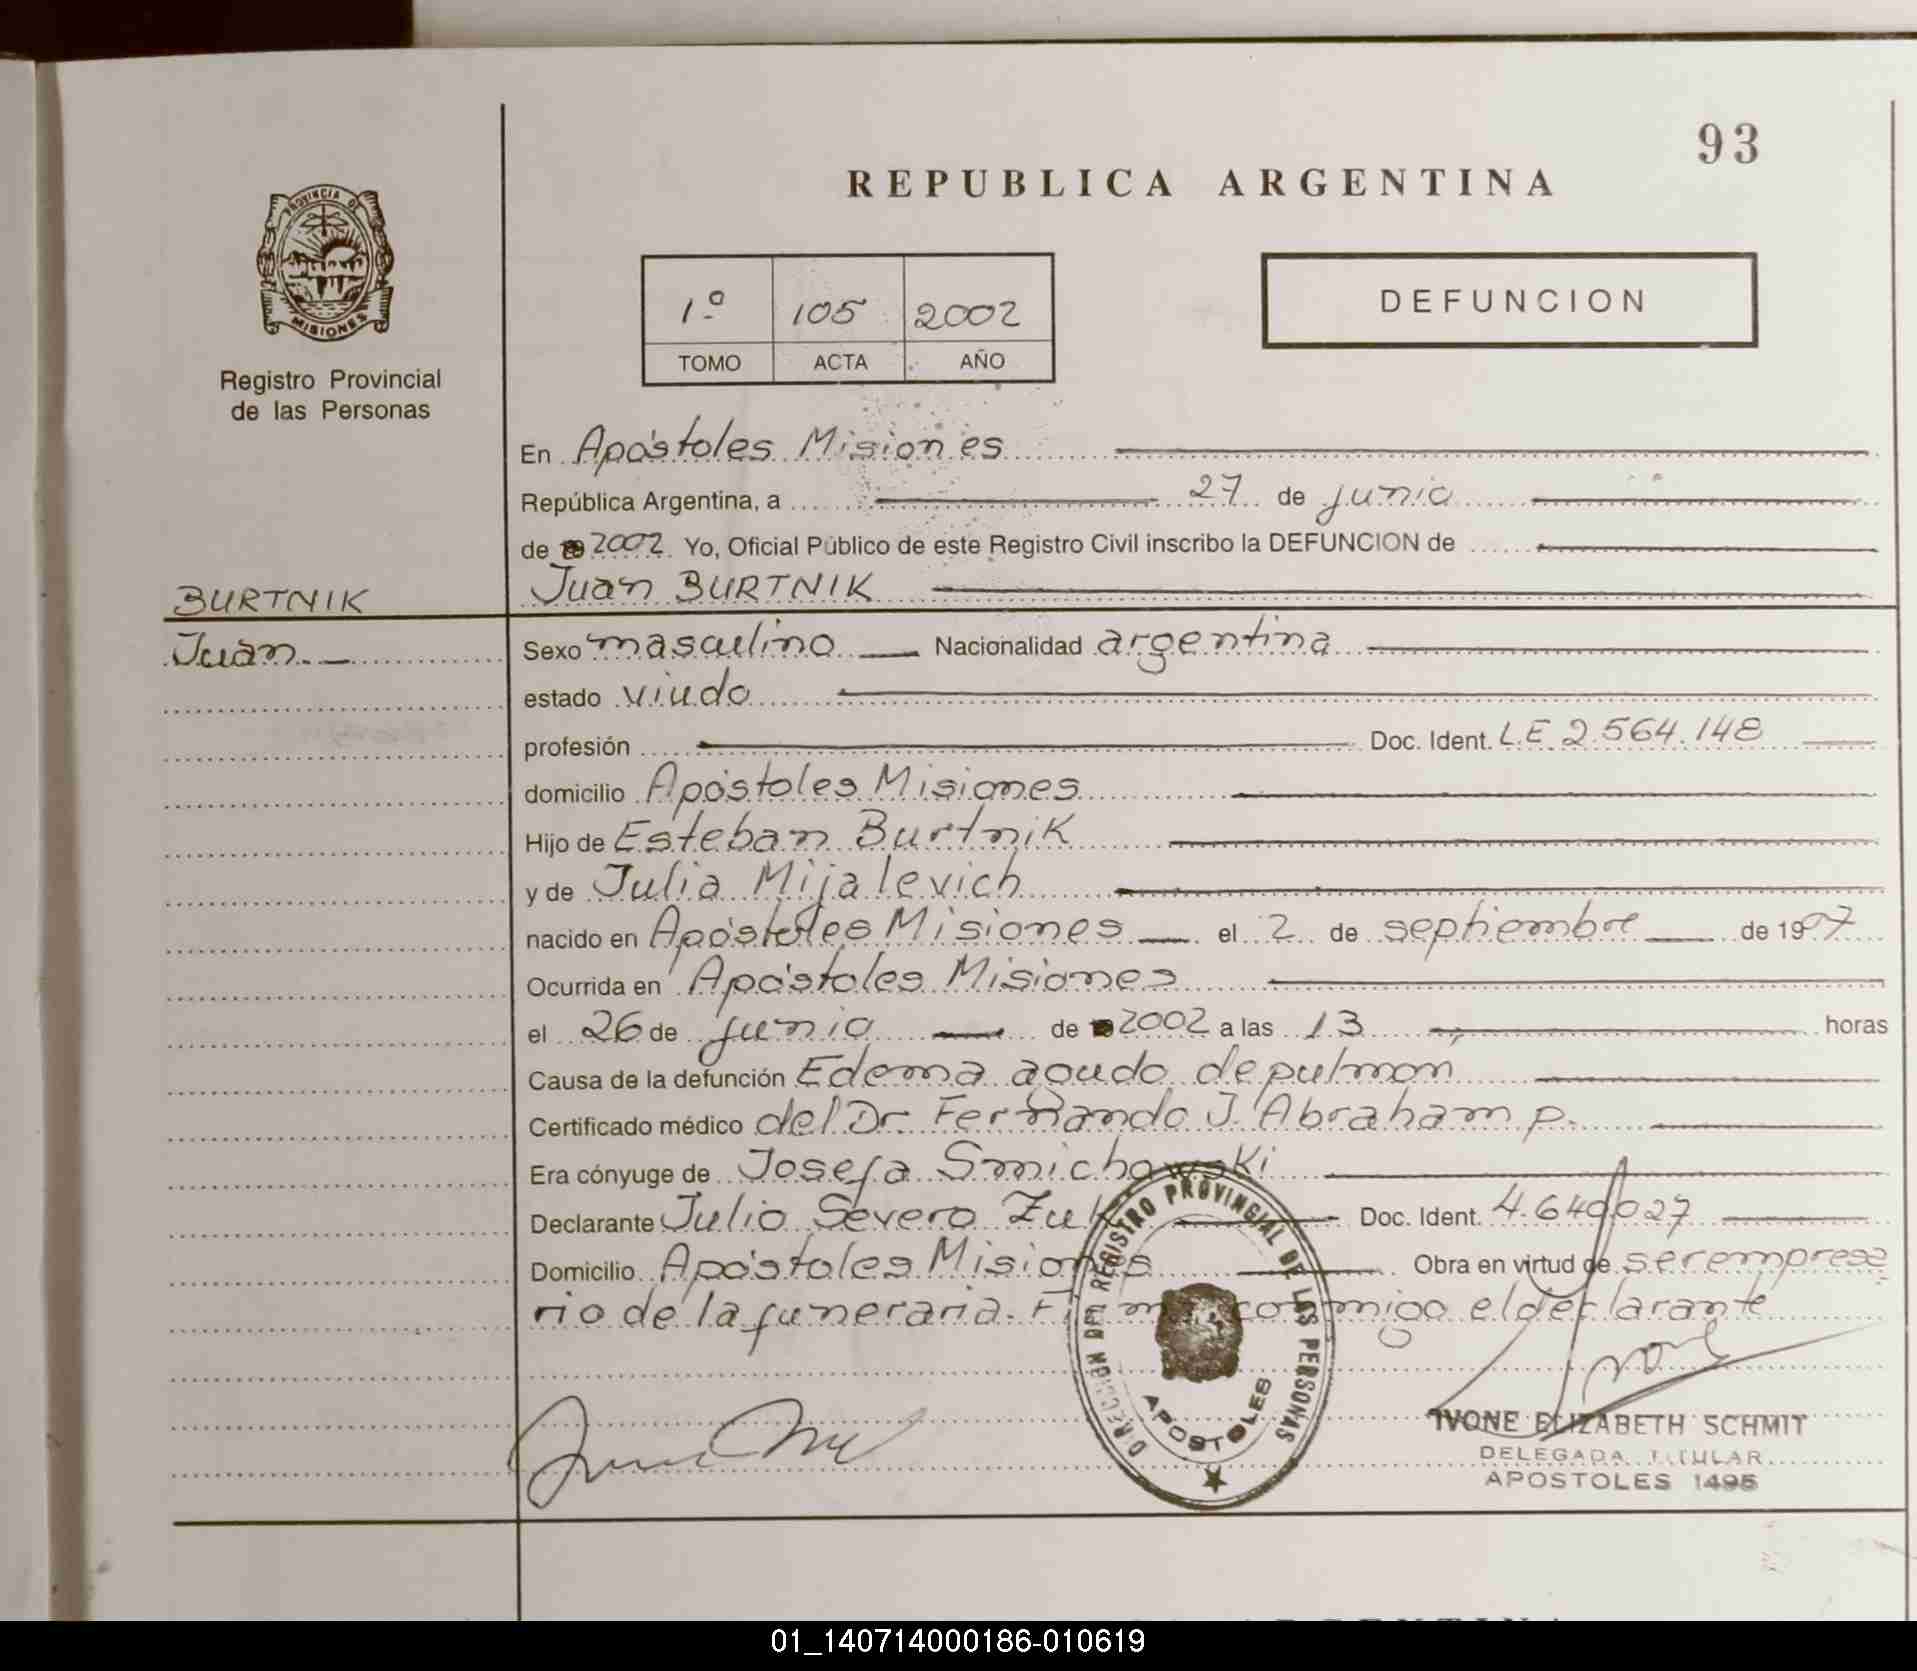 93
REPUBLICA ARGENTINA
PROVINCIA DE
MISIONES
Registro Provincial
de las Personas
1º 105 2002
TOMO ACTA AÑO
DEFUNCION
En Apóstoles Misiones
República Argentina, a 27 de junio
de 2002 Yo, Oficial Público de este Registro Civil inscribo la DEFUNCION de
BURTNIK Juan BURTNIK
Juan.-
Sexo masculino Nacionalidad argentina
estado viudo
profesión Doc. Ident. L.E 2.564.148
domicilio Apóstoles Misiones
Hijo de Esteban Burtnik
y de Julia Mijalevich
nacido en Apóstoles Misiones el 2 de septiembre de 1907
Ocurrida en Apóstoles Misiones
el 26 de junio de 2002 a las 13 horas
Causa de la defunción Edema agudo de pulmon
Certificado médico del Dr. Fernando J. Abraham p.
Era cónyuge de Josefa Smichowski
Declarante Julio Severo Zuk Doc. Ident. 4.640.027
Domicilio Apóstoles Misiones Obra en virtud de ser empresa
rio de la funeraria. Firma conmigo el declarante
DIRECCION DEL REGISTRO PROVINCIAL DE LAS PERSONAS
APOSTOLES
IVONE ELIZABETH SCHMIT
DELEGADA TITULAR
APOSTOLES 1495
01_140714000186-010619